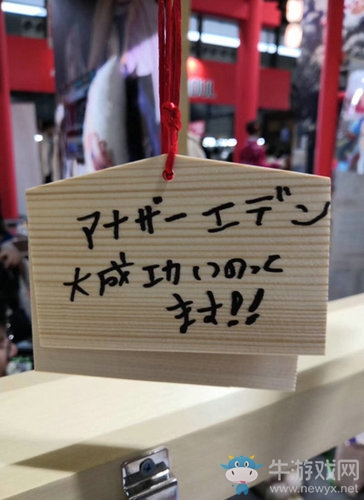 アナザーエデン
大成功いのって
ます!!
牛游戏网
www.newyx.net